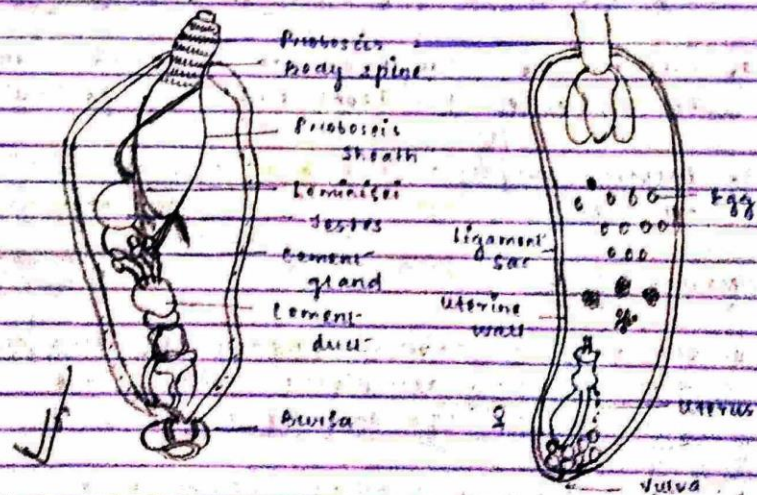 Proboscis
Body spine
Proboscis
Sheath
Leminisci
Testes
Cement
gland
Cement
duct
Bursa
Egg
Ligament
Sac
Uterine
wall
♀
Uterus
Vulva